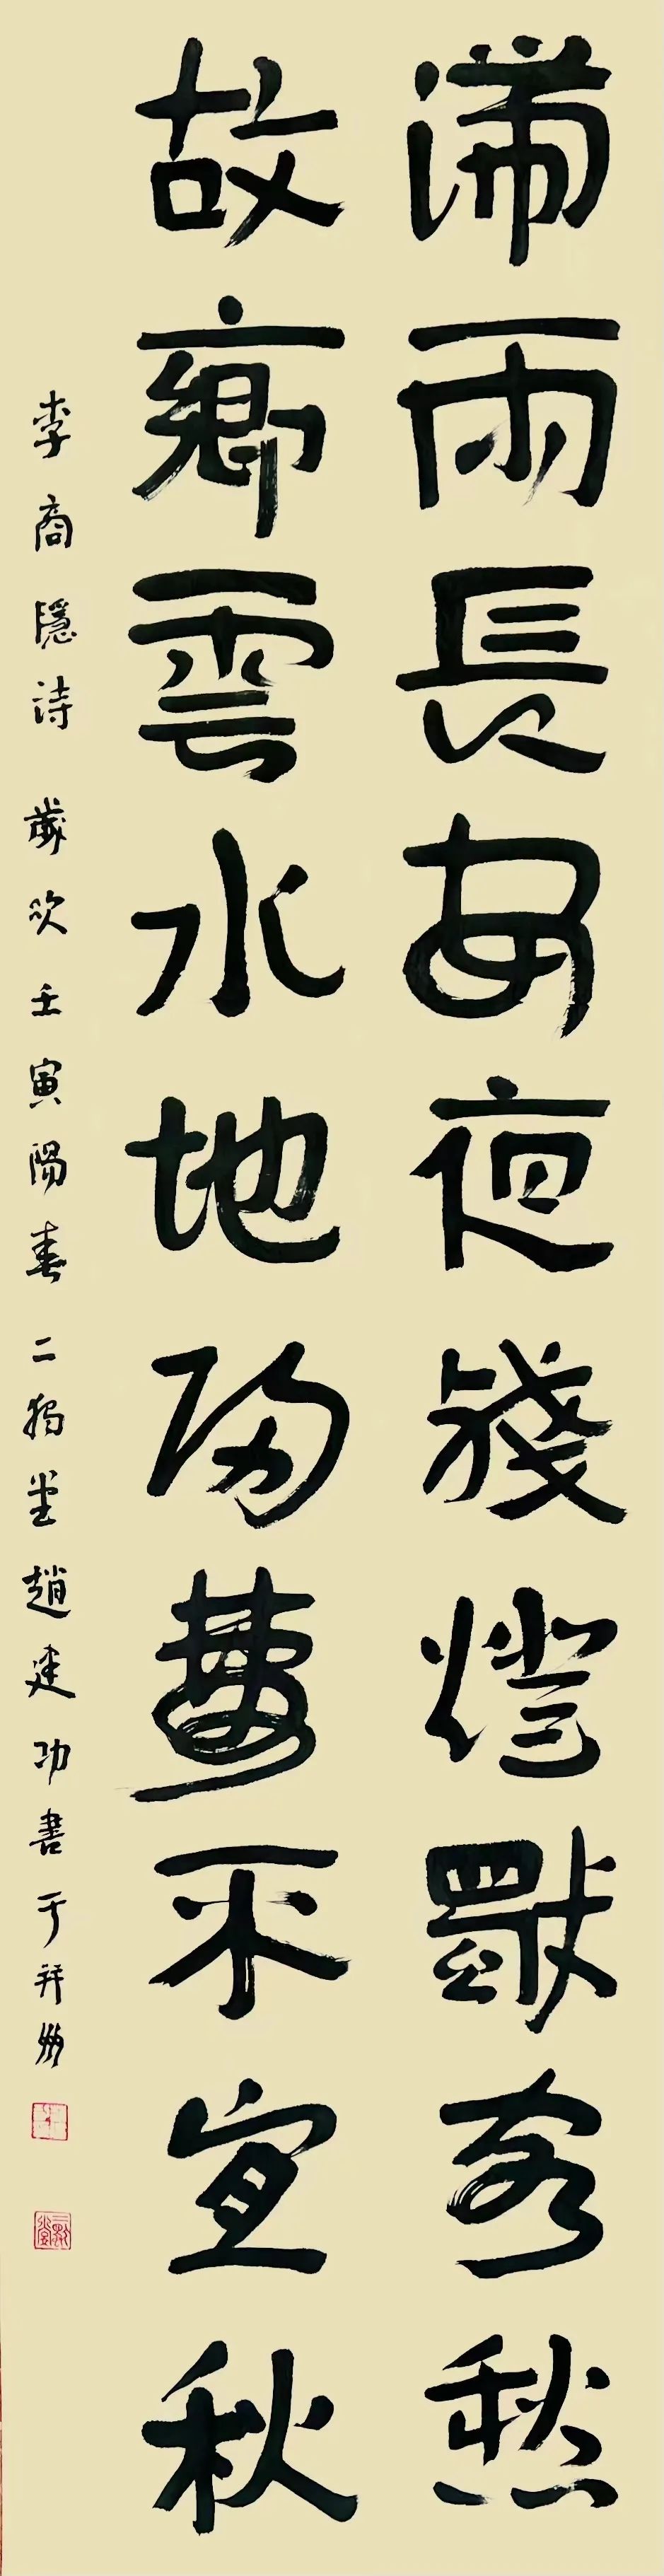 滯雨長安夜殘燈獨客愁
故鄉雲水地歸夢不宜秋
李商隱詩 歲次壬寅陽春 二獨堂趙建功書于并州